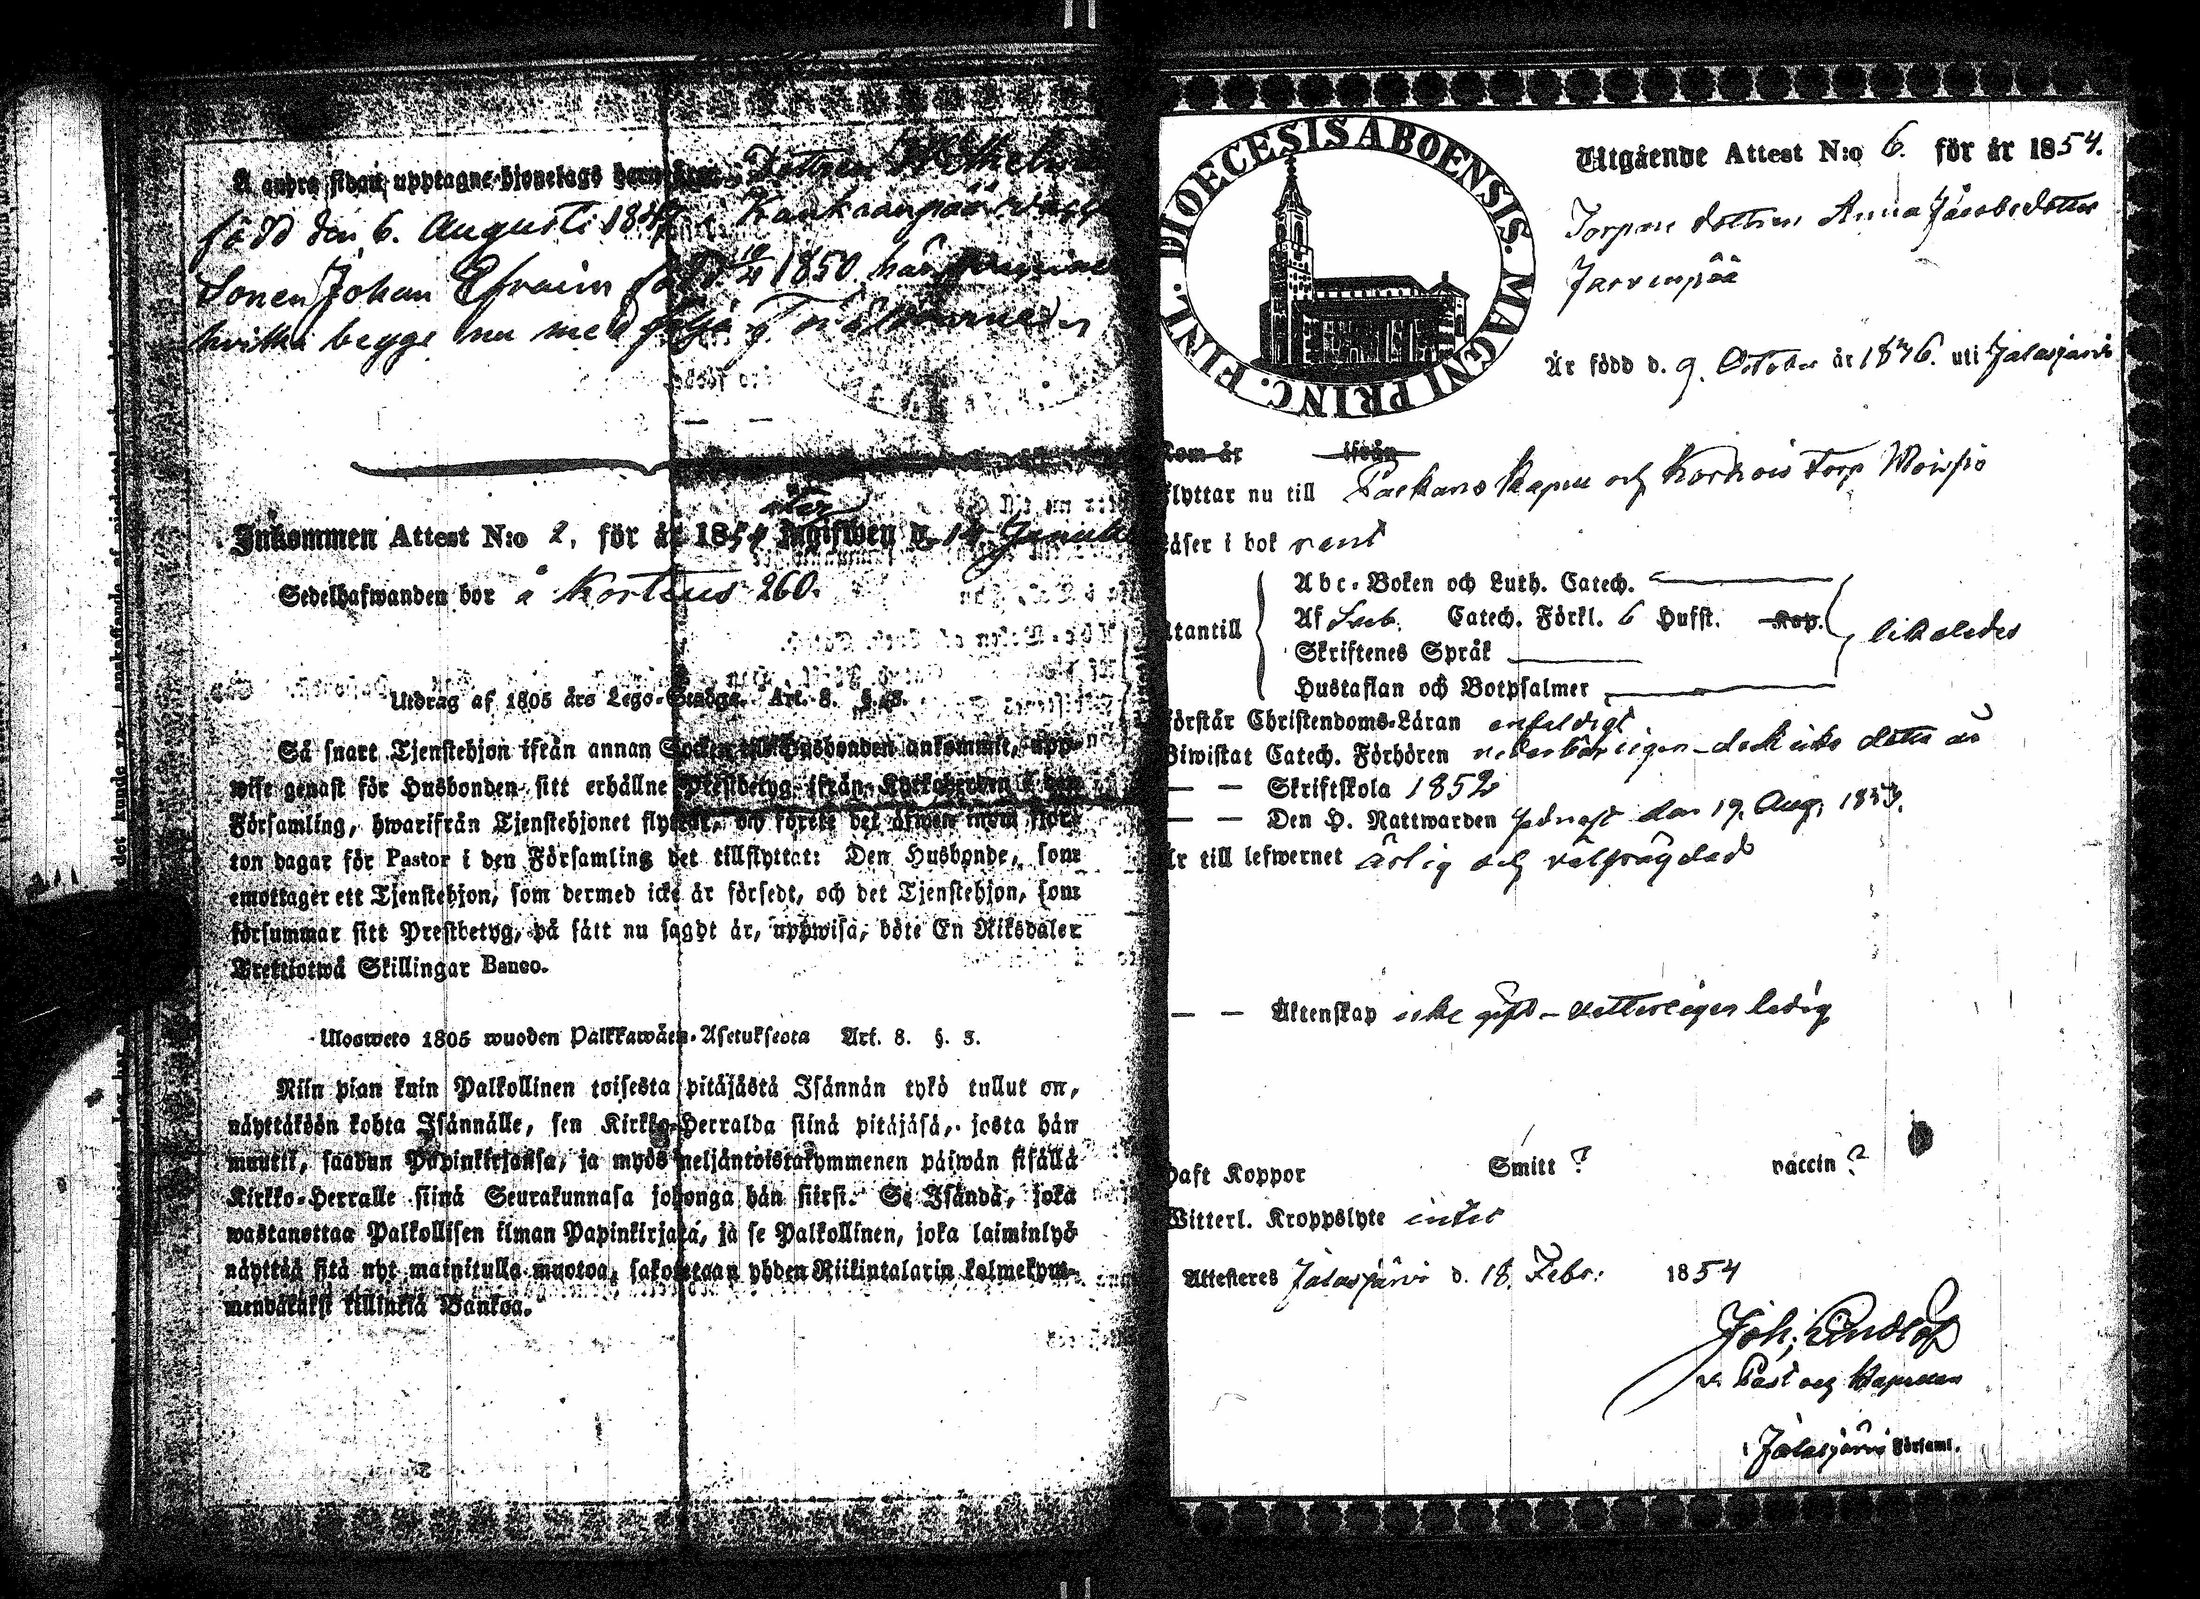 Å andra sidan upptagne hjonelags barn äro: Dottren
född den 6. Augusti i Kankaanpää
Sonen Johan Efraim född 1850 här
hvilka begge nu med följa Föräldrarne
Inkommen Attest N:o 2, för år 1854 d. 14 Januari
Sedelhafwanden bor å Korteus 260.
Utdrag af 1805 års Lego-Stadga. Art. 8. §. 3.
Så snart Tjenstehjon ifrån annan Socken till Husbonden ankommit, upp-
wise genast för Husbonden sitt erhållne Prestbetyg ifrån Kyrkoherden i den
Församling, hwarifrån Tjenstehjonet flyttat, och förete det äfwen inom fjor-
ton dagar för Pastor i den Församling det tillflyttat: Den Husbonde, som
emottager ett Tjenstehjon, som dermed icke är försedt, och det Tjenstehjon, som
försummar sitt Prestbetyg, på sätt nu sagdt är, uppwisa, böte En Riksdaler
Trettiotwå Skillingar Banco.
Ulosweto 1805 wuoden Palkkawäen-Asetuksesta Art. 8. §. 3.
Niin pian kuin Palkollinen toisesta pitäjästä Isännän tykö tullut on,
näyttäköön kohta Isännälle, sen Kirkko-Herralda siinä pitäjäsä, josta hän
muutti, saadun Papinkirjansa, ja myös neljäntoistakymmenen päiwän sisällä
Kirkko-Herralle siinä Seurakunnasa johonga hän siirsi. Se Isändä, joka
wastanottaa Palkollisen ilman Papinkirjata, ja se Palkollinen, joka laiminlyö
näyttää sitä nyt mainitulla muotoa, sakotetaan yhden Riikintalarin kolmekym-
mendäkaksi killinkiä Bankoa.
DIOECESIS ABOENSIS. MAGNI PRINC. FINL.
Utgående Attest N:o 6. för år 1854.
Torpare dottren Anna Jacobsdotter
Jarvenpää
Är född d. 9. October år 1836. uti Jalasjärvi
Kom år ifrån
flyttar nu till Parkano Kapell och Torp
Läser i bok rent
Abc-Boken och Luth. Catech.
Utantill Af Catech. Förkl. 6 Hufst. Kap. likaledes
Skriftenes Språk
Hustaflan och Botpsalmer
Förstår Christendoms-Läran enfaldigt
Biwistat Catech. Förhören vederbörligen - dock icke detta år
— — Skriftskola 1852
— — Den H. Nattwarden sednast den 19. Aug. 1853.
Är till lefwernet ärlig och välfrägdad
— — Äktenskap icke gift - vetterligen ledig
Haft Koppor Smitt ? vaccin ?
Witterl. Kroppslyte intet
Attesteras Jalasjärvi d. 18. Febr. 1854
Joh:
v. Past och Kapellan
i Jalasjärvi Församl.